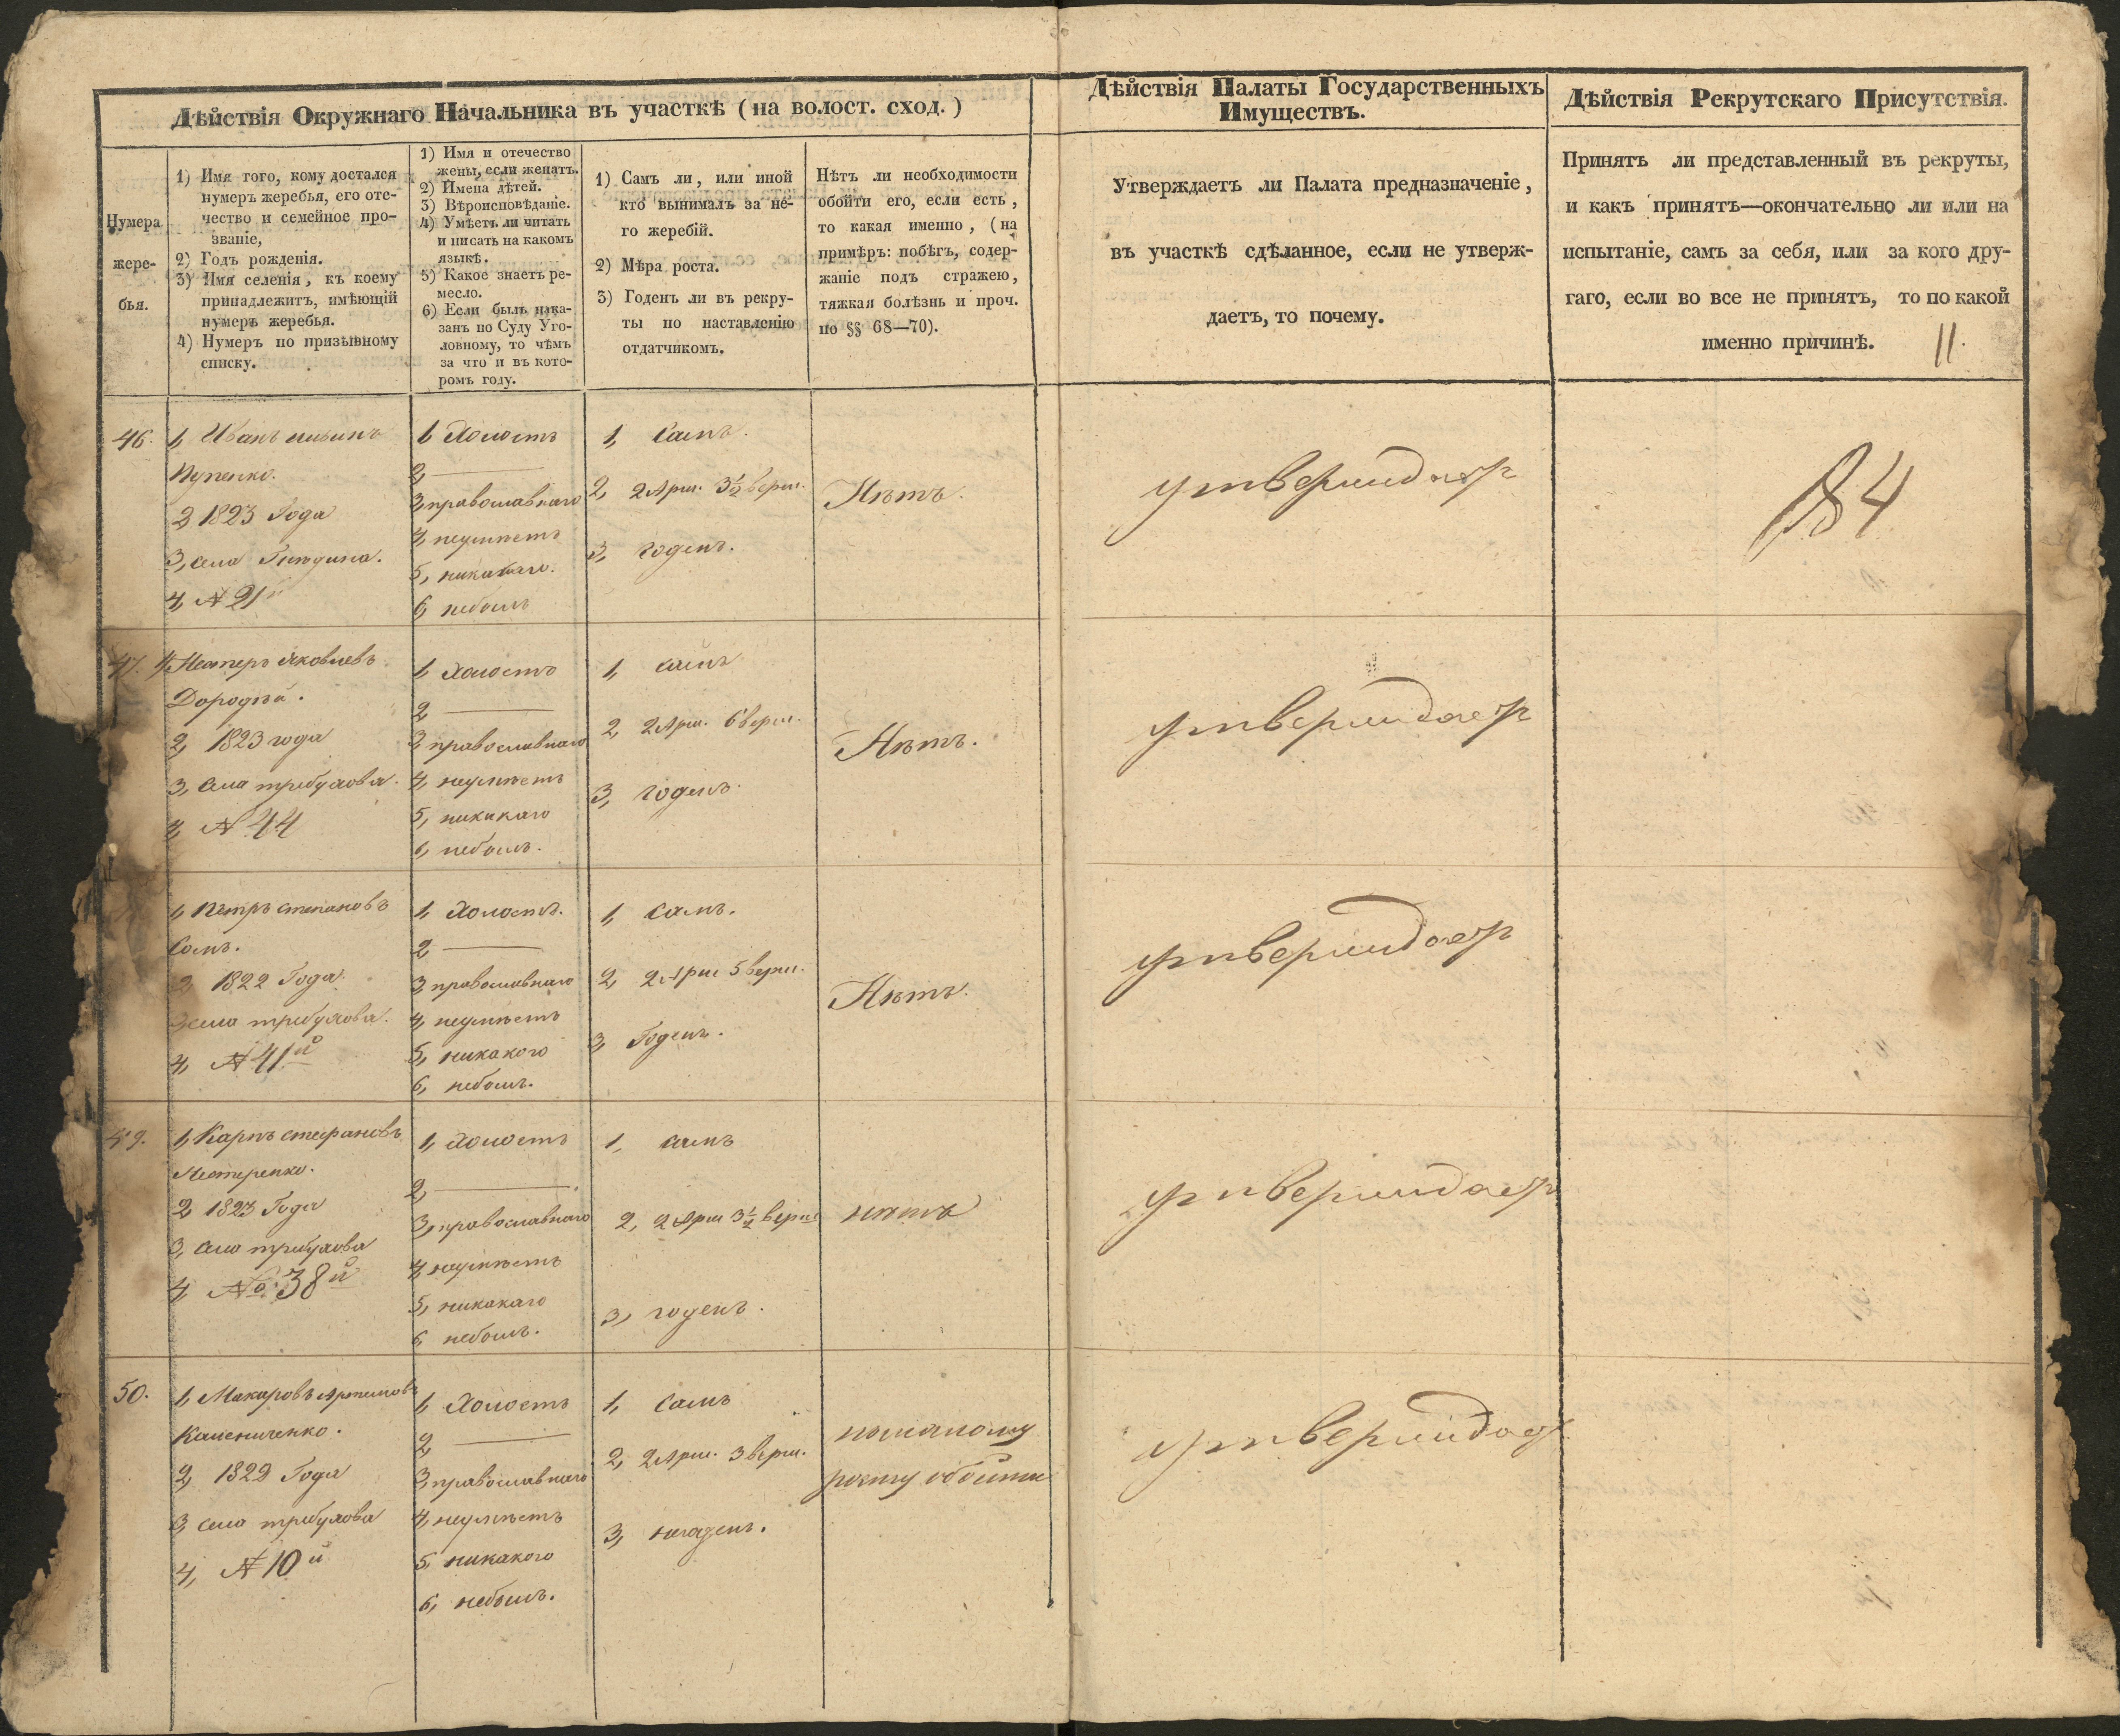 Дѣйствія Окружнаго Начальника въ участкѣ (на волост. сход.)
Дѣйствія Палаты Государственныхъ
Имуществъ.
Дѣйствія Рекрутскаго Присутствія.
Нумера
жере-
бья.
1) Имя того, кому достался
нумеръ жеребья, его оте-
чество и семейное про-
званіе,
2) Годъ рожденія.
3) Имя селенія, къ коему
принадлежитъ, имѣющій
нумеръ жеребья.
4) Нумеръ по призывному
списку.
1) Имя и отечество
жены, если женатъ.
2) Имена дѣтей.
3) Вѣроисповѣданіе.
4) Умѣетъ ли читать
и писать на какомъ
языкѣ.
5) Какое знаетъ ре-
месло.
6) Если былъ нака-
занъ по Суду Уго-
ловному, то чѣмъ
за что и въ кото-
ромъ году.
1) Самъ ли, или иной
кто вынималъ за не-
го жеребій.
2) Мѣра роста.
3) Годенъ ли въ рекру-
ты по наставленію
отдатчикомъ.
Нѣтъ ли необходимости
обойти его, если есть,
то какая именно, (на
примѣръ: побѣгъ, содер-
жаніе подъ стражею,
тяжкая болѣзнь и проч.
по §§ 68—70).
Утверждаетъ ли Палата предназначеніе,
въ участкѣ сдѣланное, если не утверж-
даетъ, то почему.
Принятъ ли представленный въ рекруты,
и какъ принятъ—окончательно ли или на
испытаніе, самъ за себя, или за кого дру-
гаго, если во все не принятъ, то по какой
именно причинѣ.
11.
46.
1, Иванъ
2 1823 Года
3, села
4, № 21
1, Холостъ
2,
3, православнаго
4, неумѣетъ
5, никакаго.
6, небылъ
1, Самъ.
2, 2 Арш. 3½ верш.
3, годенъ.
Нѣтъ.
утверждает
84
47.
1, Нестеръ Яковлевъ
2, 1823 года
3, Села трибухова.
4, № 44
1, Холостъ
2
3, православнаго
4, неумѣетъ
5, никакаго
6, небылъ.
1, самъ
2, 2 Арш. 6 верш.
3, годенъ.
Нѣтъ.
утверждает
1, Петръ степановъ
Сомъ.
2 1822 Года
3, села трибухова.
4, № 41й
1, Холостъ.
2
3, православнаго
4, неумѣетъ
5, никакого
6, небылъ.
1, самъ.
2, 2 Арш 5 верш.
3, Годенъ.
Нѣтъ.
утверждает
49.
1, Карпъ стефановъ
Нестеренко.
2 1823 Года
3, села трибухова
4, № 38й
1, Холостъ
2,
3, православнаго
4, неумѣетъ
5, никакаго
6, небылъ.
1, самъ
2, 2 Арш 3½ верш
3, годенъ.
нѣтъ
утверждает
50.
1, Макаровъ Артемовъ
2, 1822 Года
3, села трибухова
4, № 10й
1, Холостъ
2,
3, православнаго
4, неумѣетъ
5, никакого
6, небылъ.
1, Самъ
2, 2 Арш. 3 верш.
3, негоденъ.
помалому
росту обойти
утверждает